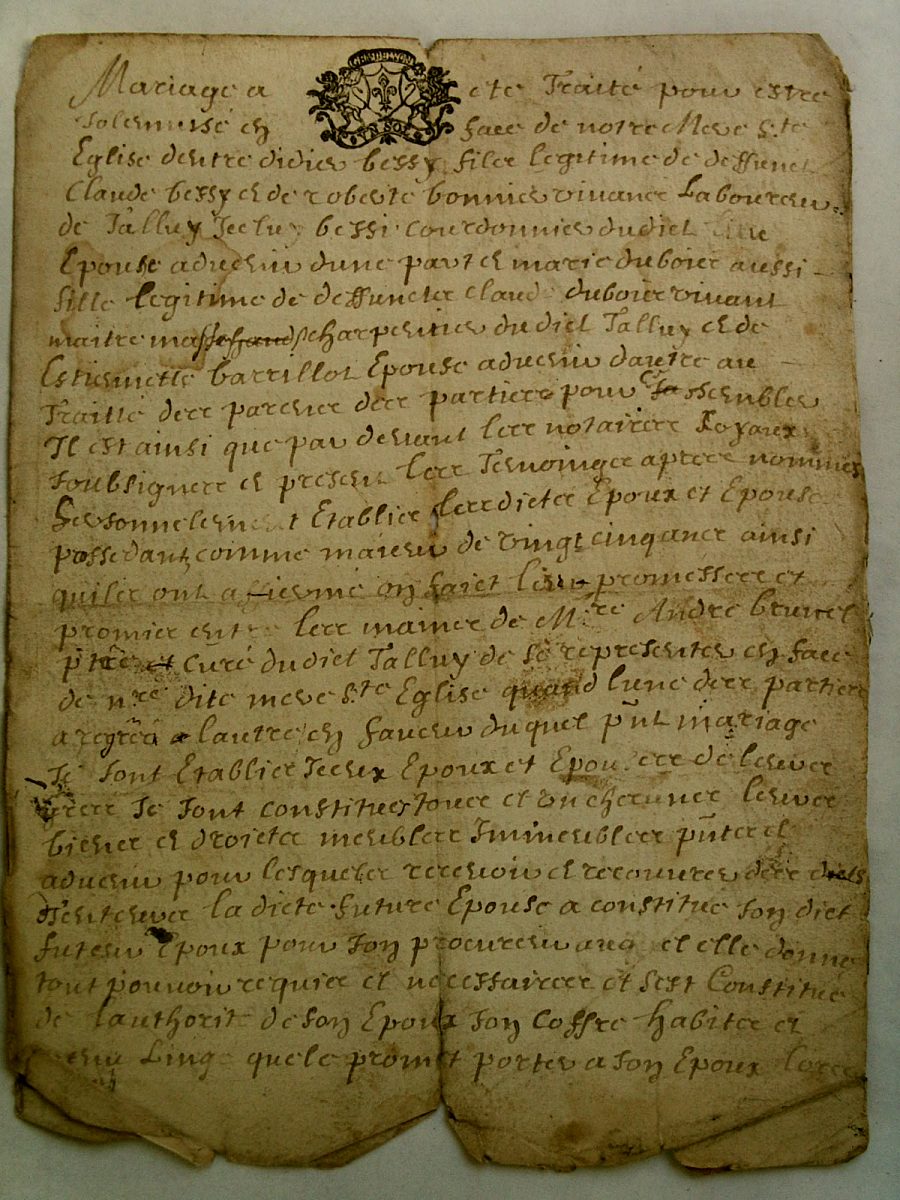 Mariage a este Traité pour estre
solemnisé en face de notre Mere Ste
Eglise dentre didier bessy filz legitime de deffunct
Claude bessy et de roberte bonnier vivance Laboureur
de Talluy Iceluy bessi courdonnier dudict lieu
Epouse advenir dune part et marie duboier aussi
fille legitime de deffuncter claude duboier vivant
maitre charpentier dudict Talluy et de
Estiennette barrillot Epouse advenir dautre au
Traitté derr parener derr partierr pour assembler
Il est ainsi que par devant lerr notairerr Royaux
soubsignerr et present lerr Temoingz aprerr nommes
Personnelement Etablier lerr dicter Epoux et Epouse
possedant comme maieur de vingt cinqance ainsi
quiler ont affierme on faict leur promesserr et
promier entre lerr mainer de Mire André brunel
ptre curé dudict Talluy de se representer en face
de nre dite mere Ste Eglise quand lune derr partierr
a regréé a lautre en faveur duquel pnt mariage
se sont Etablier Iceux Epoux et Epouserr de leurer
se sont constitues touer et un chacuner leurer
biener et droicter meublerr Immeublerr pnter et
advenir pour lesqueler recevoir et recouvrer derr
la dicte future Epouse a constitue son dict
futeur Epoux pour son procureur auq el elle donne
tout pouvoir requier et necessairerr et sest Constitue
de lauthorite de son Epoux son coffre habiter et
menu Linge quele promet porter a son Epoux lorer